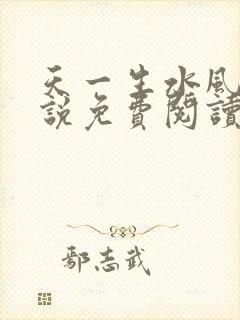 天一生水風
說免費閱讀
鄢志武